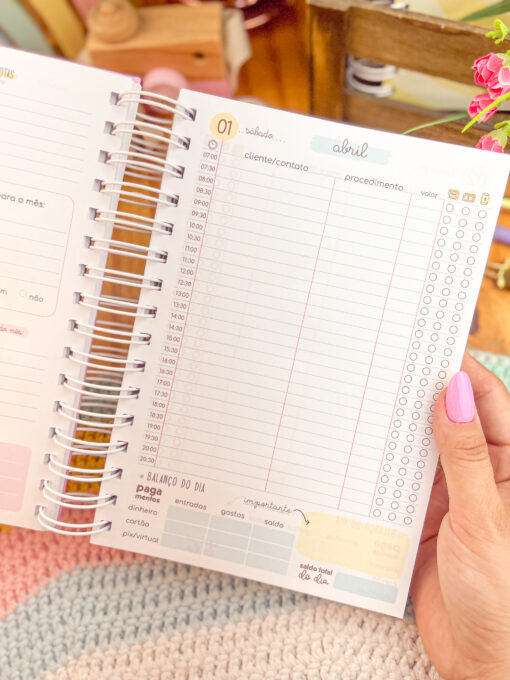 para o mês:
não
01 sábado.... abril
cliente/contato procedimento valor
07:00
07:30
08:00
08:30
09:00
09:30
10:00
10:30
11:00
11:30
12:00
12:30
13:00
13:30
14:00
14:30
15:00
15:30
16:00
16:30
17:00
17:30
18:00
18:30
19:00
19:30
20:00
20:30
BALANÇO DO DIA
pagamentos entradas gastos saldo importante
dinheiro
cartão
pix/virtual
saldo total
do dia